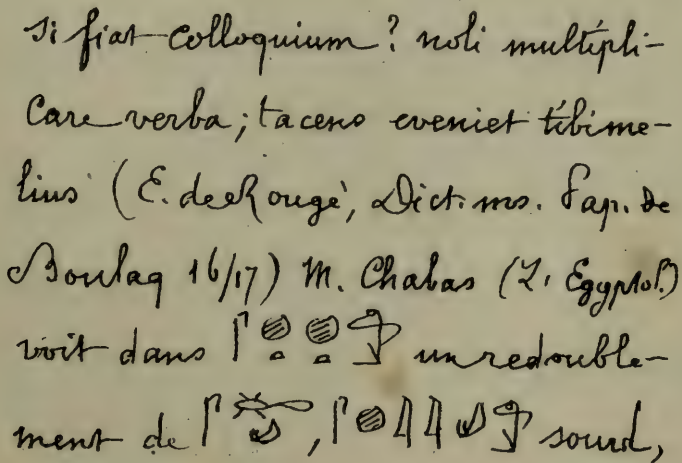 si fiat colloquium? noli multipli-
care verba; tacens eveniet tibi me-
lius (E. de Rougé, Dict. ms. Pap. de
Boulaq 16/17) M. Chabas (L'Egyptol.)
voit dans 𓋴𓐍𓏏𓐍𓏏 un redouble-
ment de sourd,